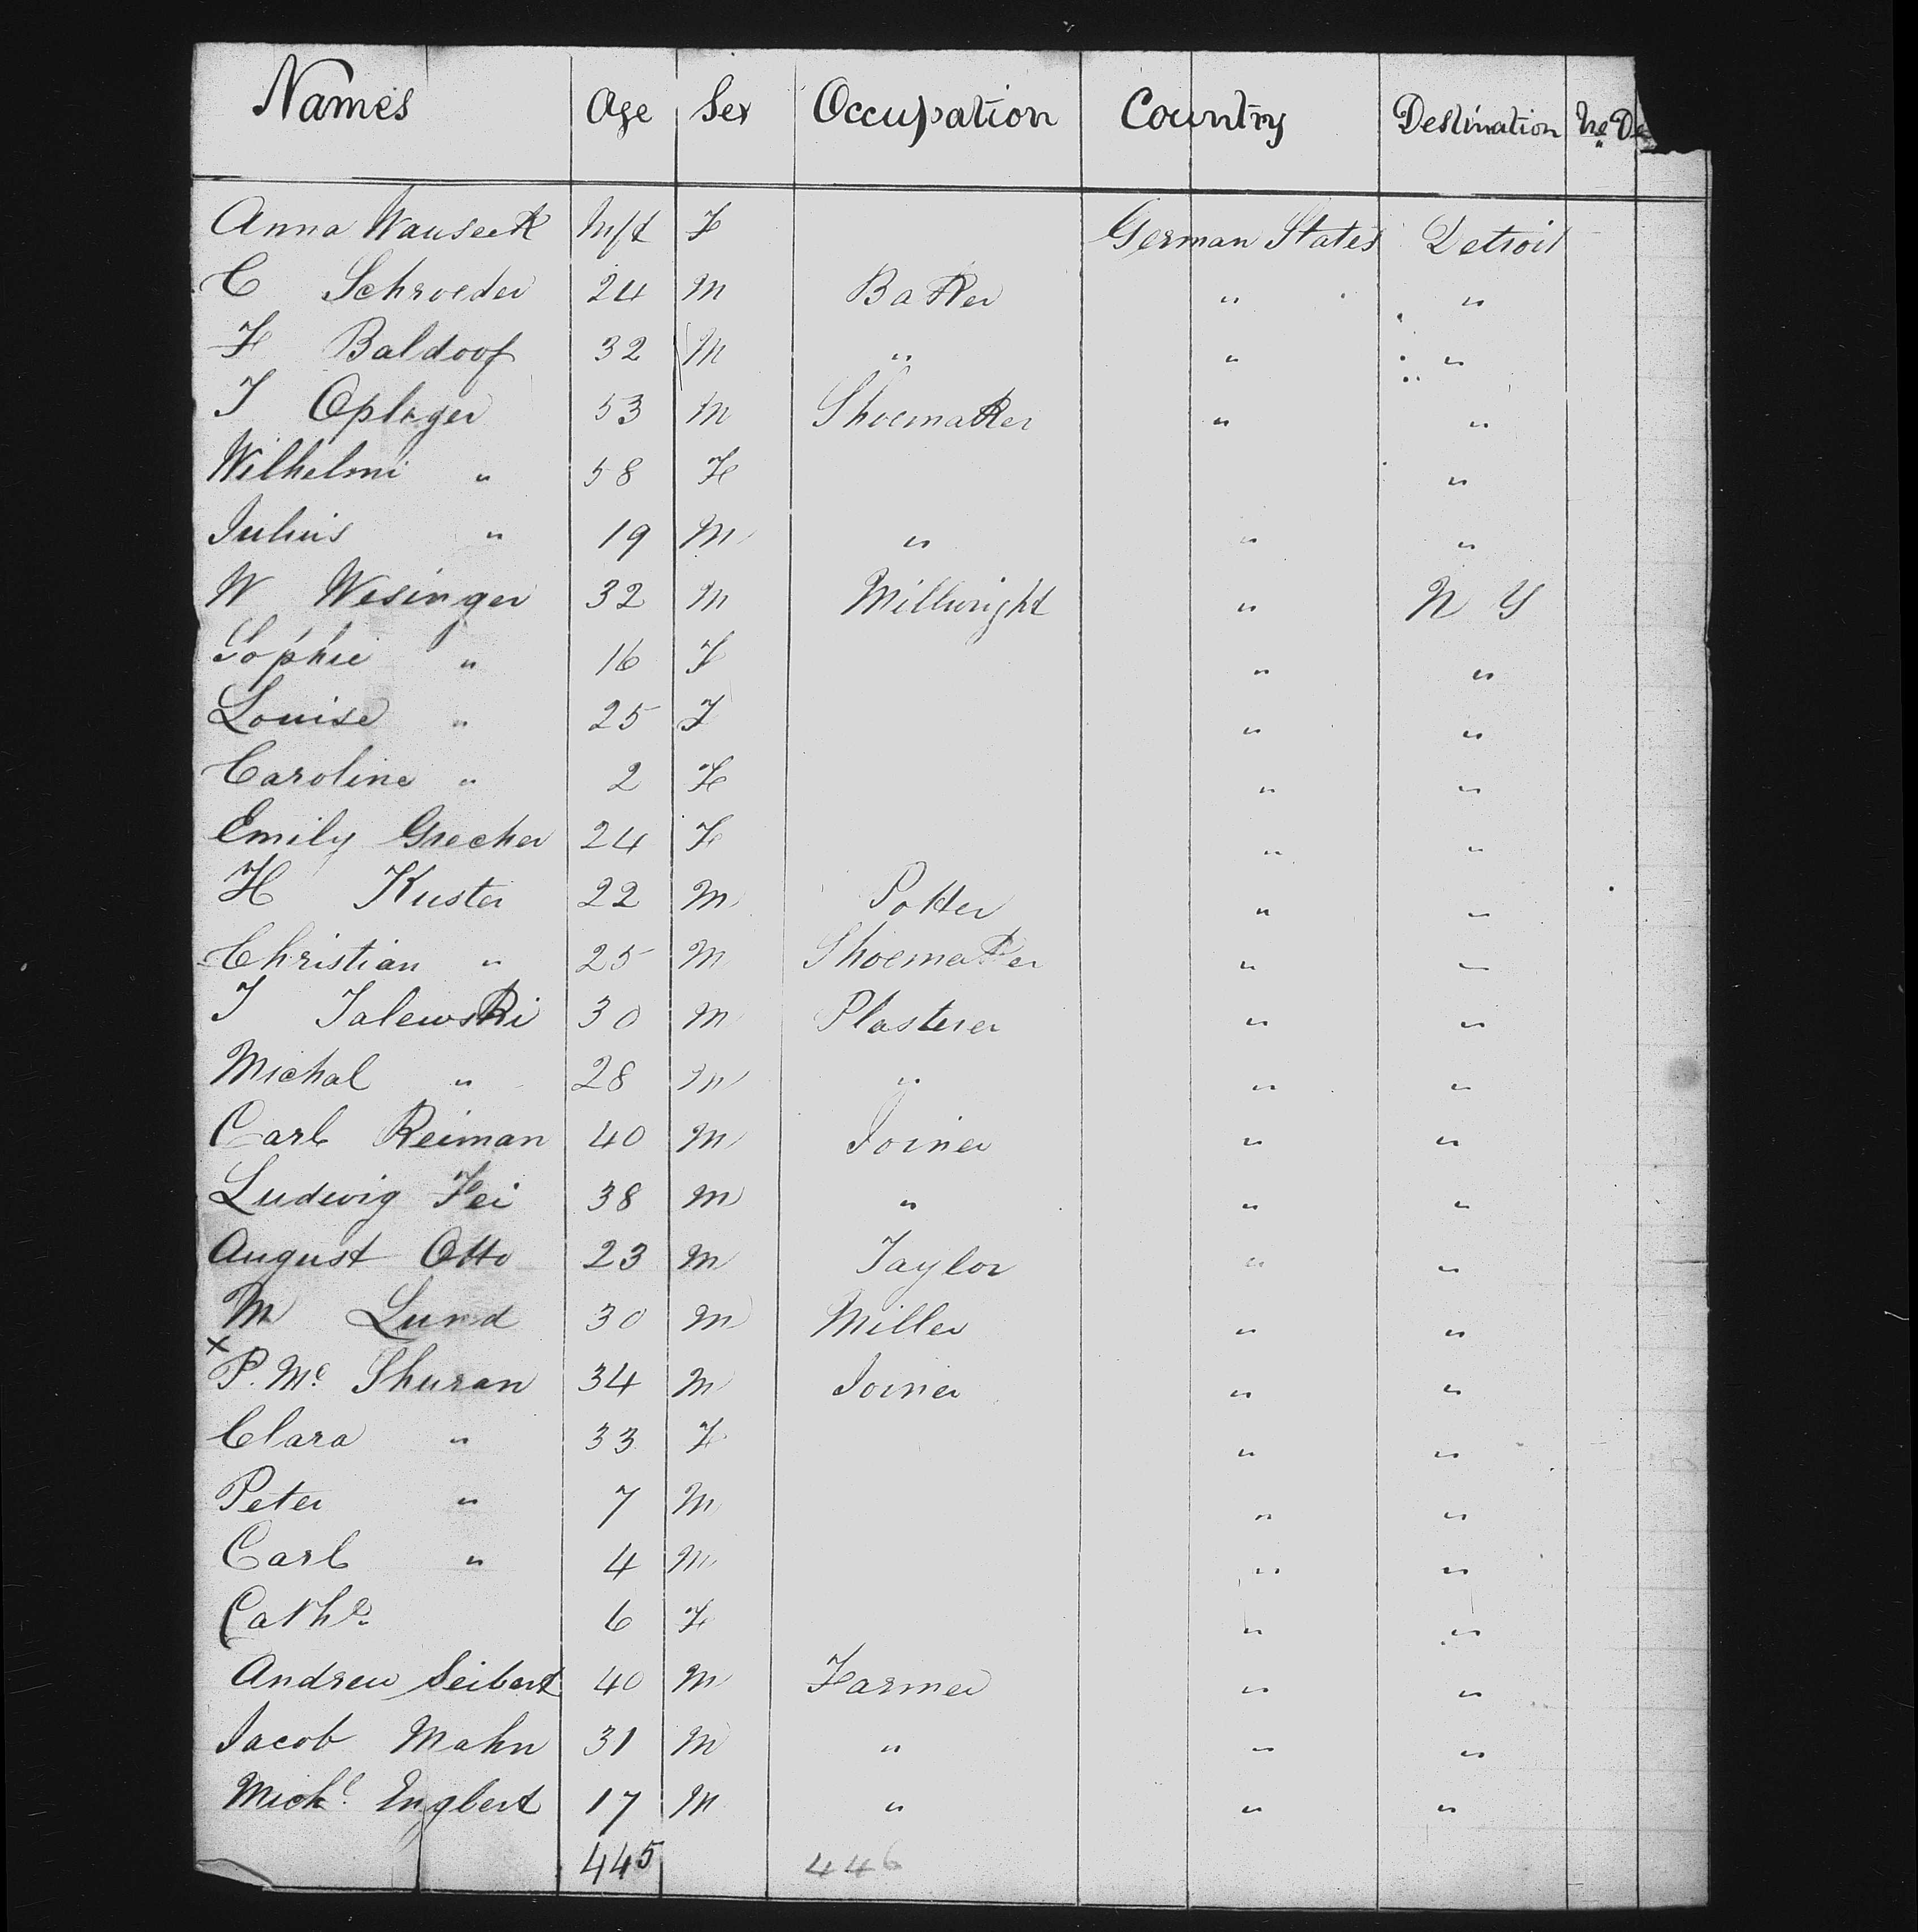 Names Age Sex Occupation Country Destination No De
Anna Wauseck Inft F German States Detroit
C Schroeder 24 M Baker " "
F Baldoof 32 M " " "
J Oplager 53 M Shoemaker " "
Wilhelmi " 58 F "
Julius " 19 M " " "
W Wesinger 32 M Millwright " N Y
Sophie " 16 F " "
Louise " 25 F " "
Caroline " 2 F " "
Emily Grecher 24 F " "
H Kuster 22 M Potter " "
Christian " 25 M Shoemaker " "
J Jalewski 30 M Plasterer " "
Michal " 28 M " " "
Carl Reiman 40 M Joiner " "
Ludwig Fei 38 M " " "
August Otto 23 M Taylor " "
M Lund 30 M Miller " "
x P. Mc Shuran 34 M Joiner " "
Clara " 33 F " "
Peter " 7 M " "
Carl " 4 M " "
Cathe 6 F " "
Andrew Seibert 40 M Farmer " "
Jacob Mahn 31 M " " "
Michl Englert 17 M " " "
445 446